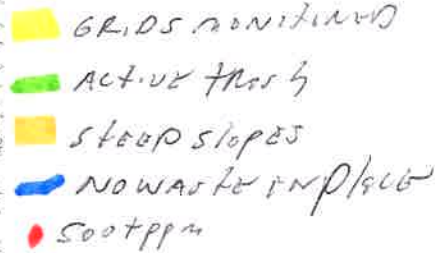 GRIDS MONITORED
ACTIVE TRASH
STEEP SLOPES
NO WASTE IN PLACE
500+ppm